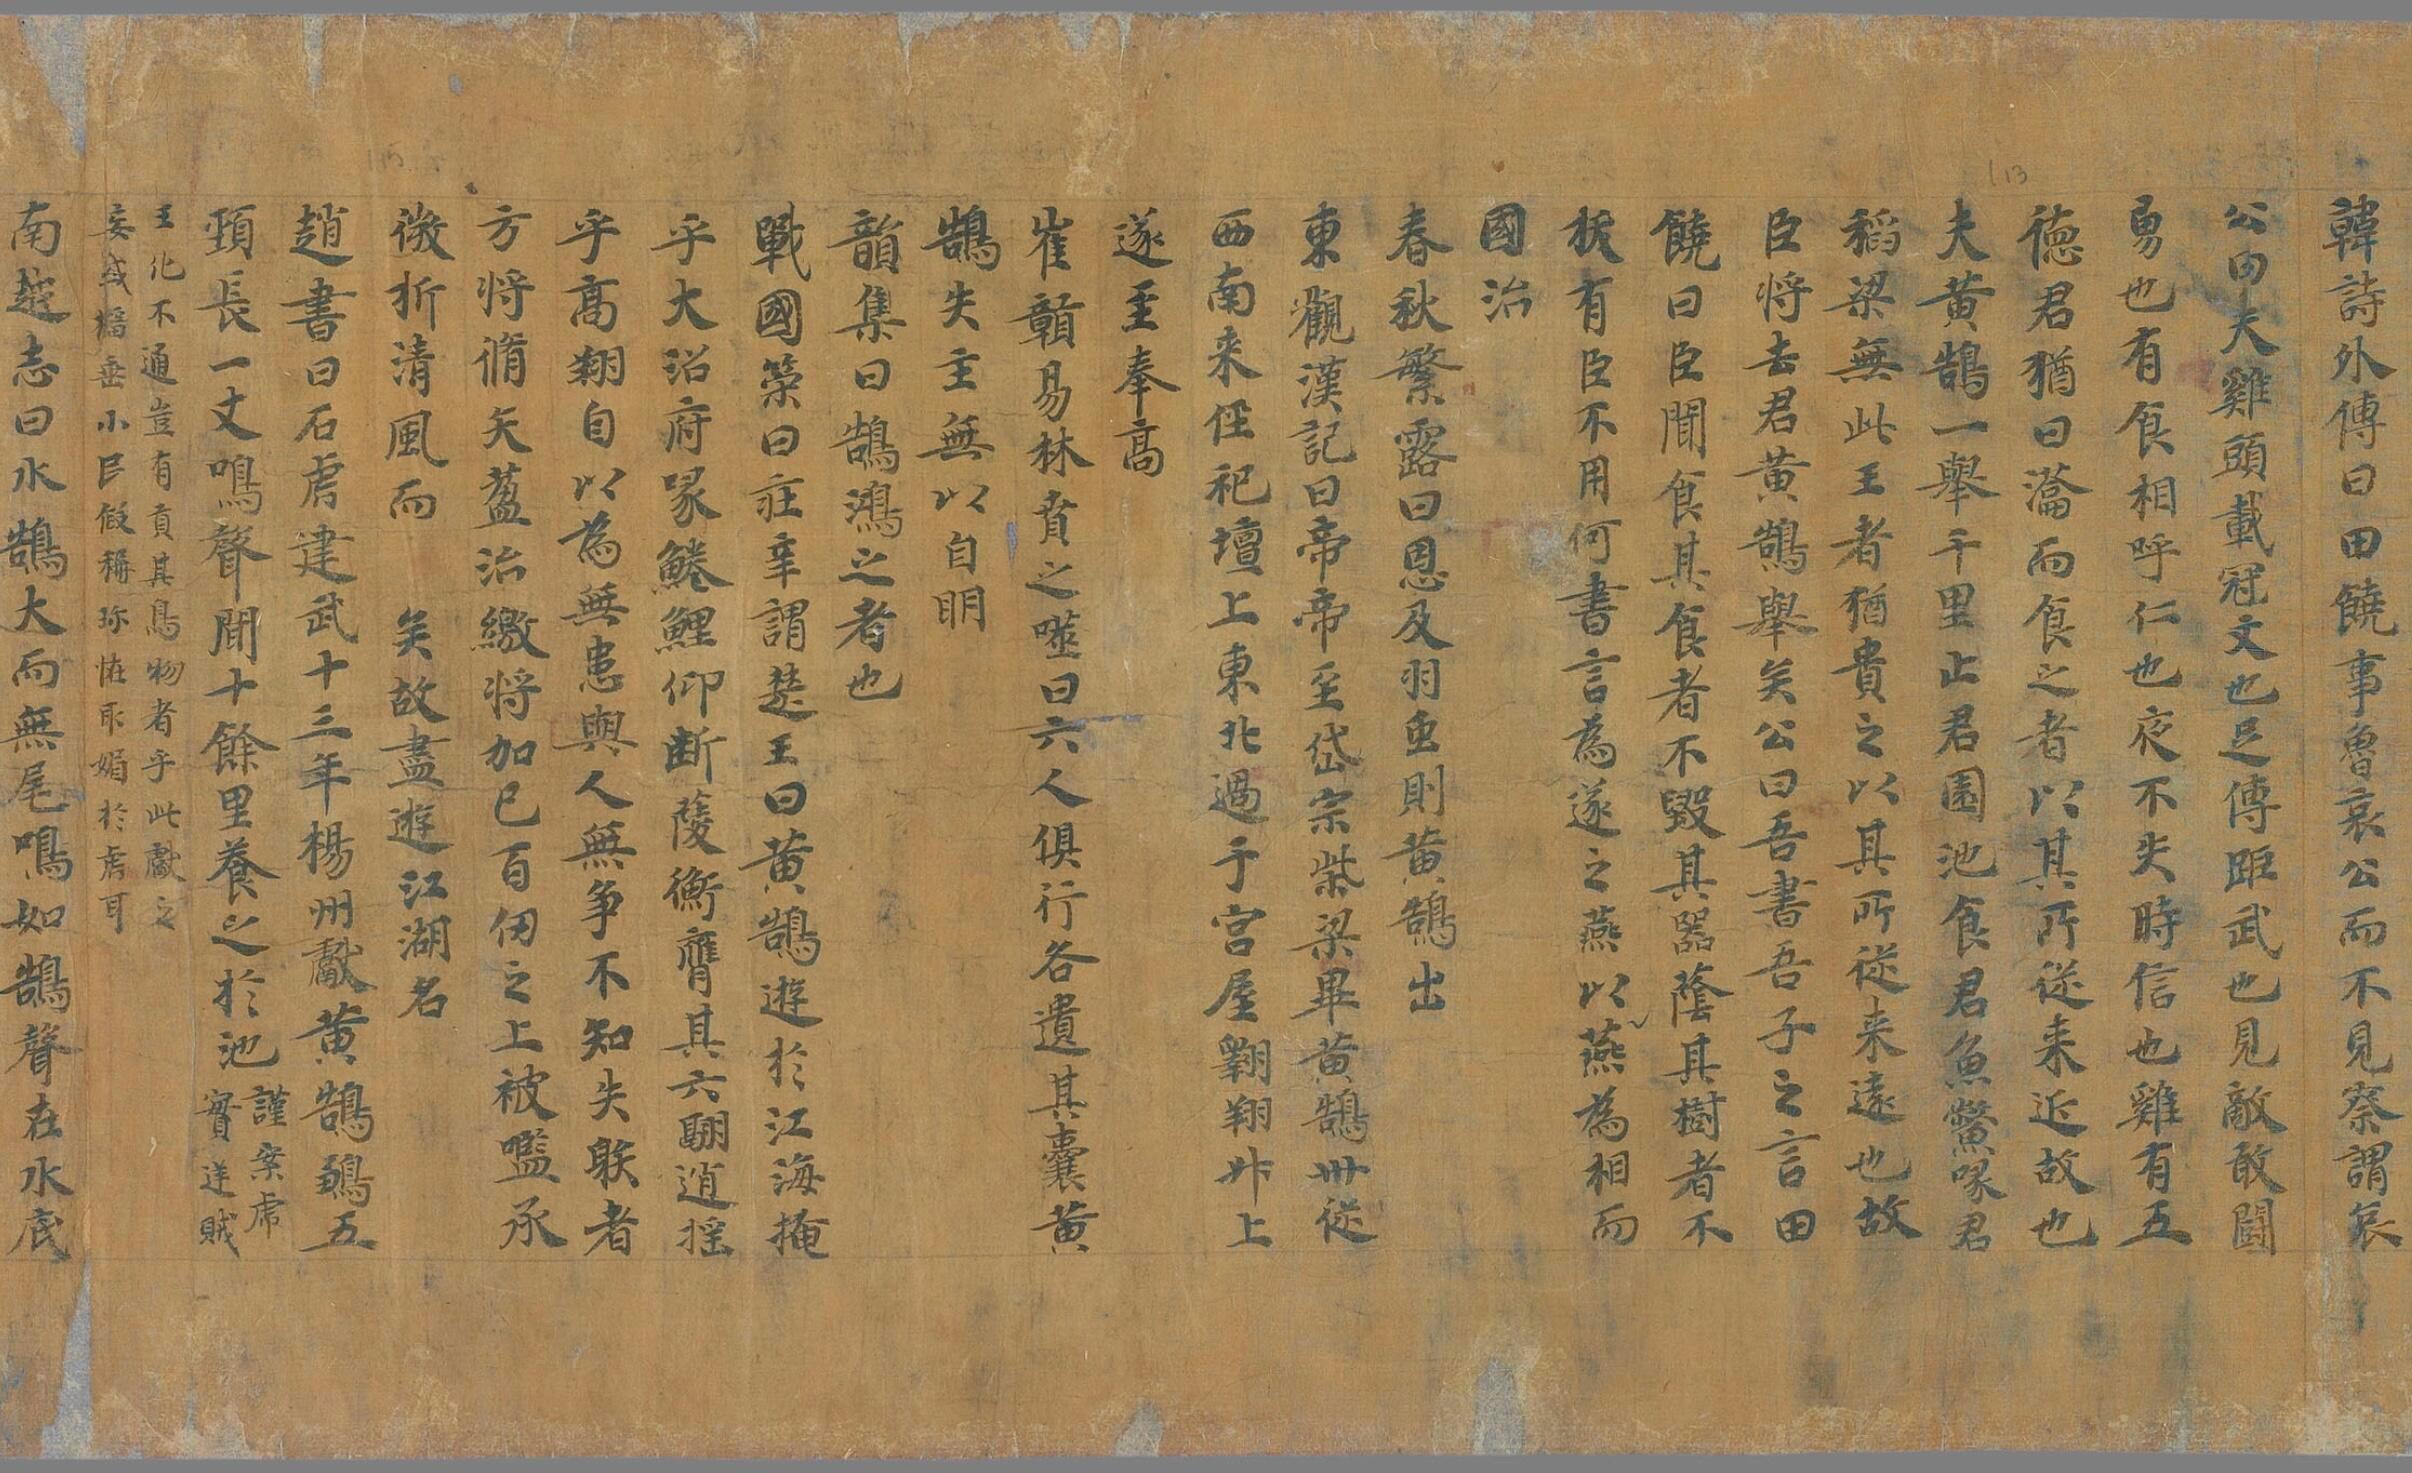 韓詩外傳曰田饒事魯哀公而不見察謂哀
公曰夫雞頭載冠文也足傅距武也見敵敢闘
勇也有食相呼仁也夜不失時信也雞有五
徳君猶曰瀹而食之者以其所従来近故也
夫黄鵠一舉千里止君園池食君魚鱉啄君
稻梁無此五者猶貴之以其所従来遠也故
臣将去君黄鵠舉矣公曰吾書吾子之言田
饒曰臣聞食其食者不毀其器蔭其樹者不
折有臣不用何書言為遂之燕以燕為相而
國治
春秋繁露曰恩及羽虫則黄鵠出
東觀漢記曰帝帝至岱宗柴梁畢黄鵠卅従
西南来俓祀壇上東北過于宫屋翱翔升上
遂至奉高
崔贛易林賁之噬曰六人俱行各遺其囊黄
鵠失主無以自明
韻集曰鵠鴻之者也
戰國策曰莊辛謂楚王曰黄鵠遊於江海掩
乎大沼府啄鰌鯉仰断菱衡膺其六翮逍揺
乎髙翔自以為無患與人無争不知失躲者
方将脩矢葢治繳将加己百仞之上被㘕承
徴折清風而 矣故晝遊江湖名
趙書曰石虎建武十三年楊州獻黄鵠鶵五
頸長一丈鳴聲聞十餘里養之於池 謹案虎
實逆賊
王化不通豈有貢其鳥物者乎此獻之
妄或櫾垂小民假稱珎恠取媚於虎耳
南越志曰水鵠大而無尾鳴如鵠聲在水底